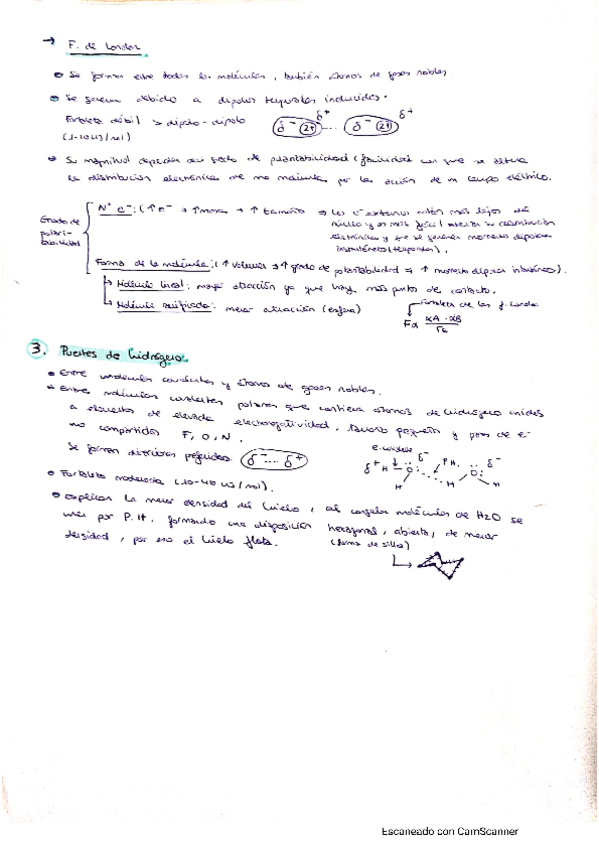 → F. de London
• Se forman entre todas las moléculas, también átomos de gases nobles.
• Se generan debido a dipolos temporales inducidos.
Fortaleza débil > dipolo-dipolo
(1-10 kJ/mol)
δ⁻ (2+) δ⁺ .... δ⁻ (2+) δ⁺
• Su magnitud depende del grado de polarizabilidad (facilidad con que se altera
la distribución electrónica de una molécula por la acción de un campo eléctrico.
Grado de polari-zabilidad
Nº e⁻: (↑ e⁻ → ↑ masa → ↑ tamaño ⇒ Los e⁻ externos están más lejos del
núcleo y es más fácil alterar su distribución
electrónica y que se generen momentos dipolares
instantáneos (temporales).
Forma de la molécula: (↑ volumen → ↑ grado de polarizabilidad → ↑ momento dipolar instantáneo).
↳ Molécula lineal: mayor atracción ya que hay más puntos de contacto.
↳ Molécula ramificada: menor atracción (esfera)
Fortaleza de las f. London
F α αA · αB / r6
3. Puentes de hidrógeno
• Entre moléculas covalentes y átomos de gases nobles.
• Entre moléculas covalentes polares que contienen átomos de hidrógeno unidos
a átomos de elevada electronegatividad, tamaño pequeño y pares de e⁻
no compartidos F, O, N.
Se forman direcciones preferidas (δ⁻ .... δ⁺)
e. covalente
δ⁺ H O δ⁻ P.H. O δ⁻
H H H
• Fortaleza moderada (10-40 kJ/mol).
• Explican la menor densidad del hielo, al congelar moléculas de H2O se
unen por P.H. formando una disposición hexagonal, abierta, de menor
densidad, por eso el hielo flota.
(forma de silla)
Escaneado con CamScanner